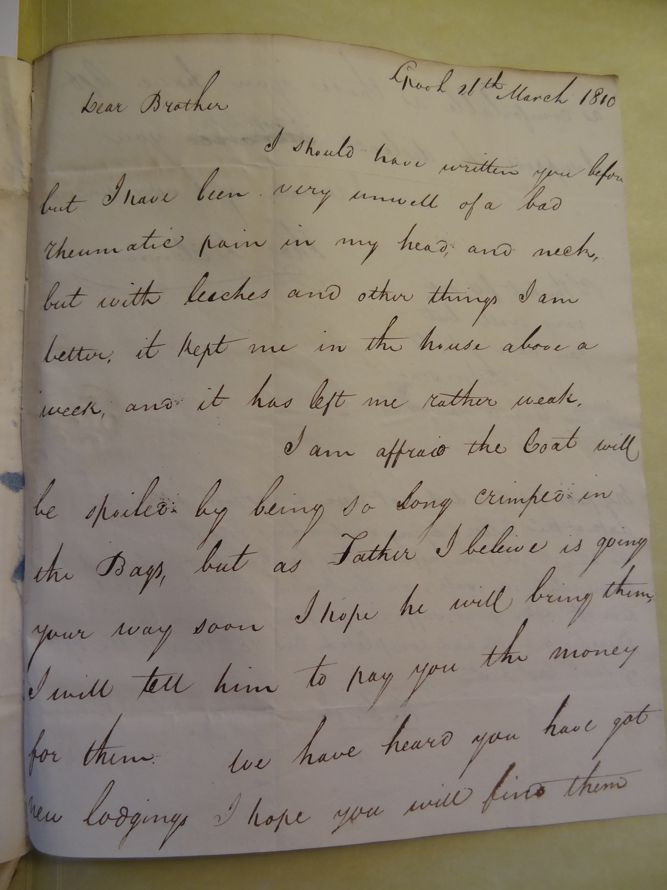 26th March 1810
Dear Brother
I should have written you before
but I have been very unwell of a bad
rheumatic pain in my head, and neck,
but with leeches and other things I am
better, it kept me in the house above a
week, and it has left me rather weak.
I am affraid the Coat will
be spoiled by being so long crimped in
the Bags, but as Father I beleive is going
your way soon I hope he will bring them,
I will tell him to pay you the money
for them. we have heard you have got
new lodgings I hope you will find them